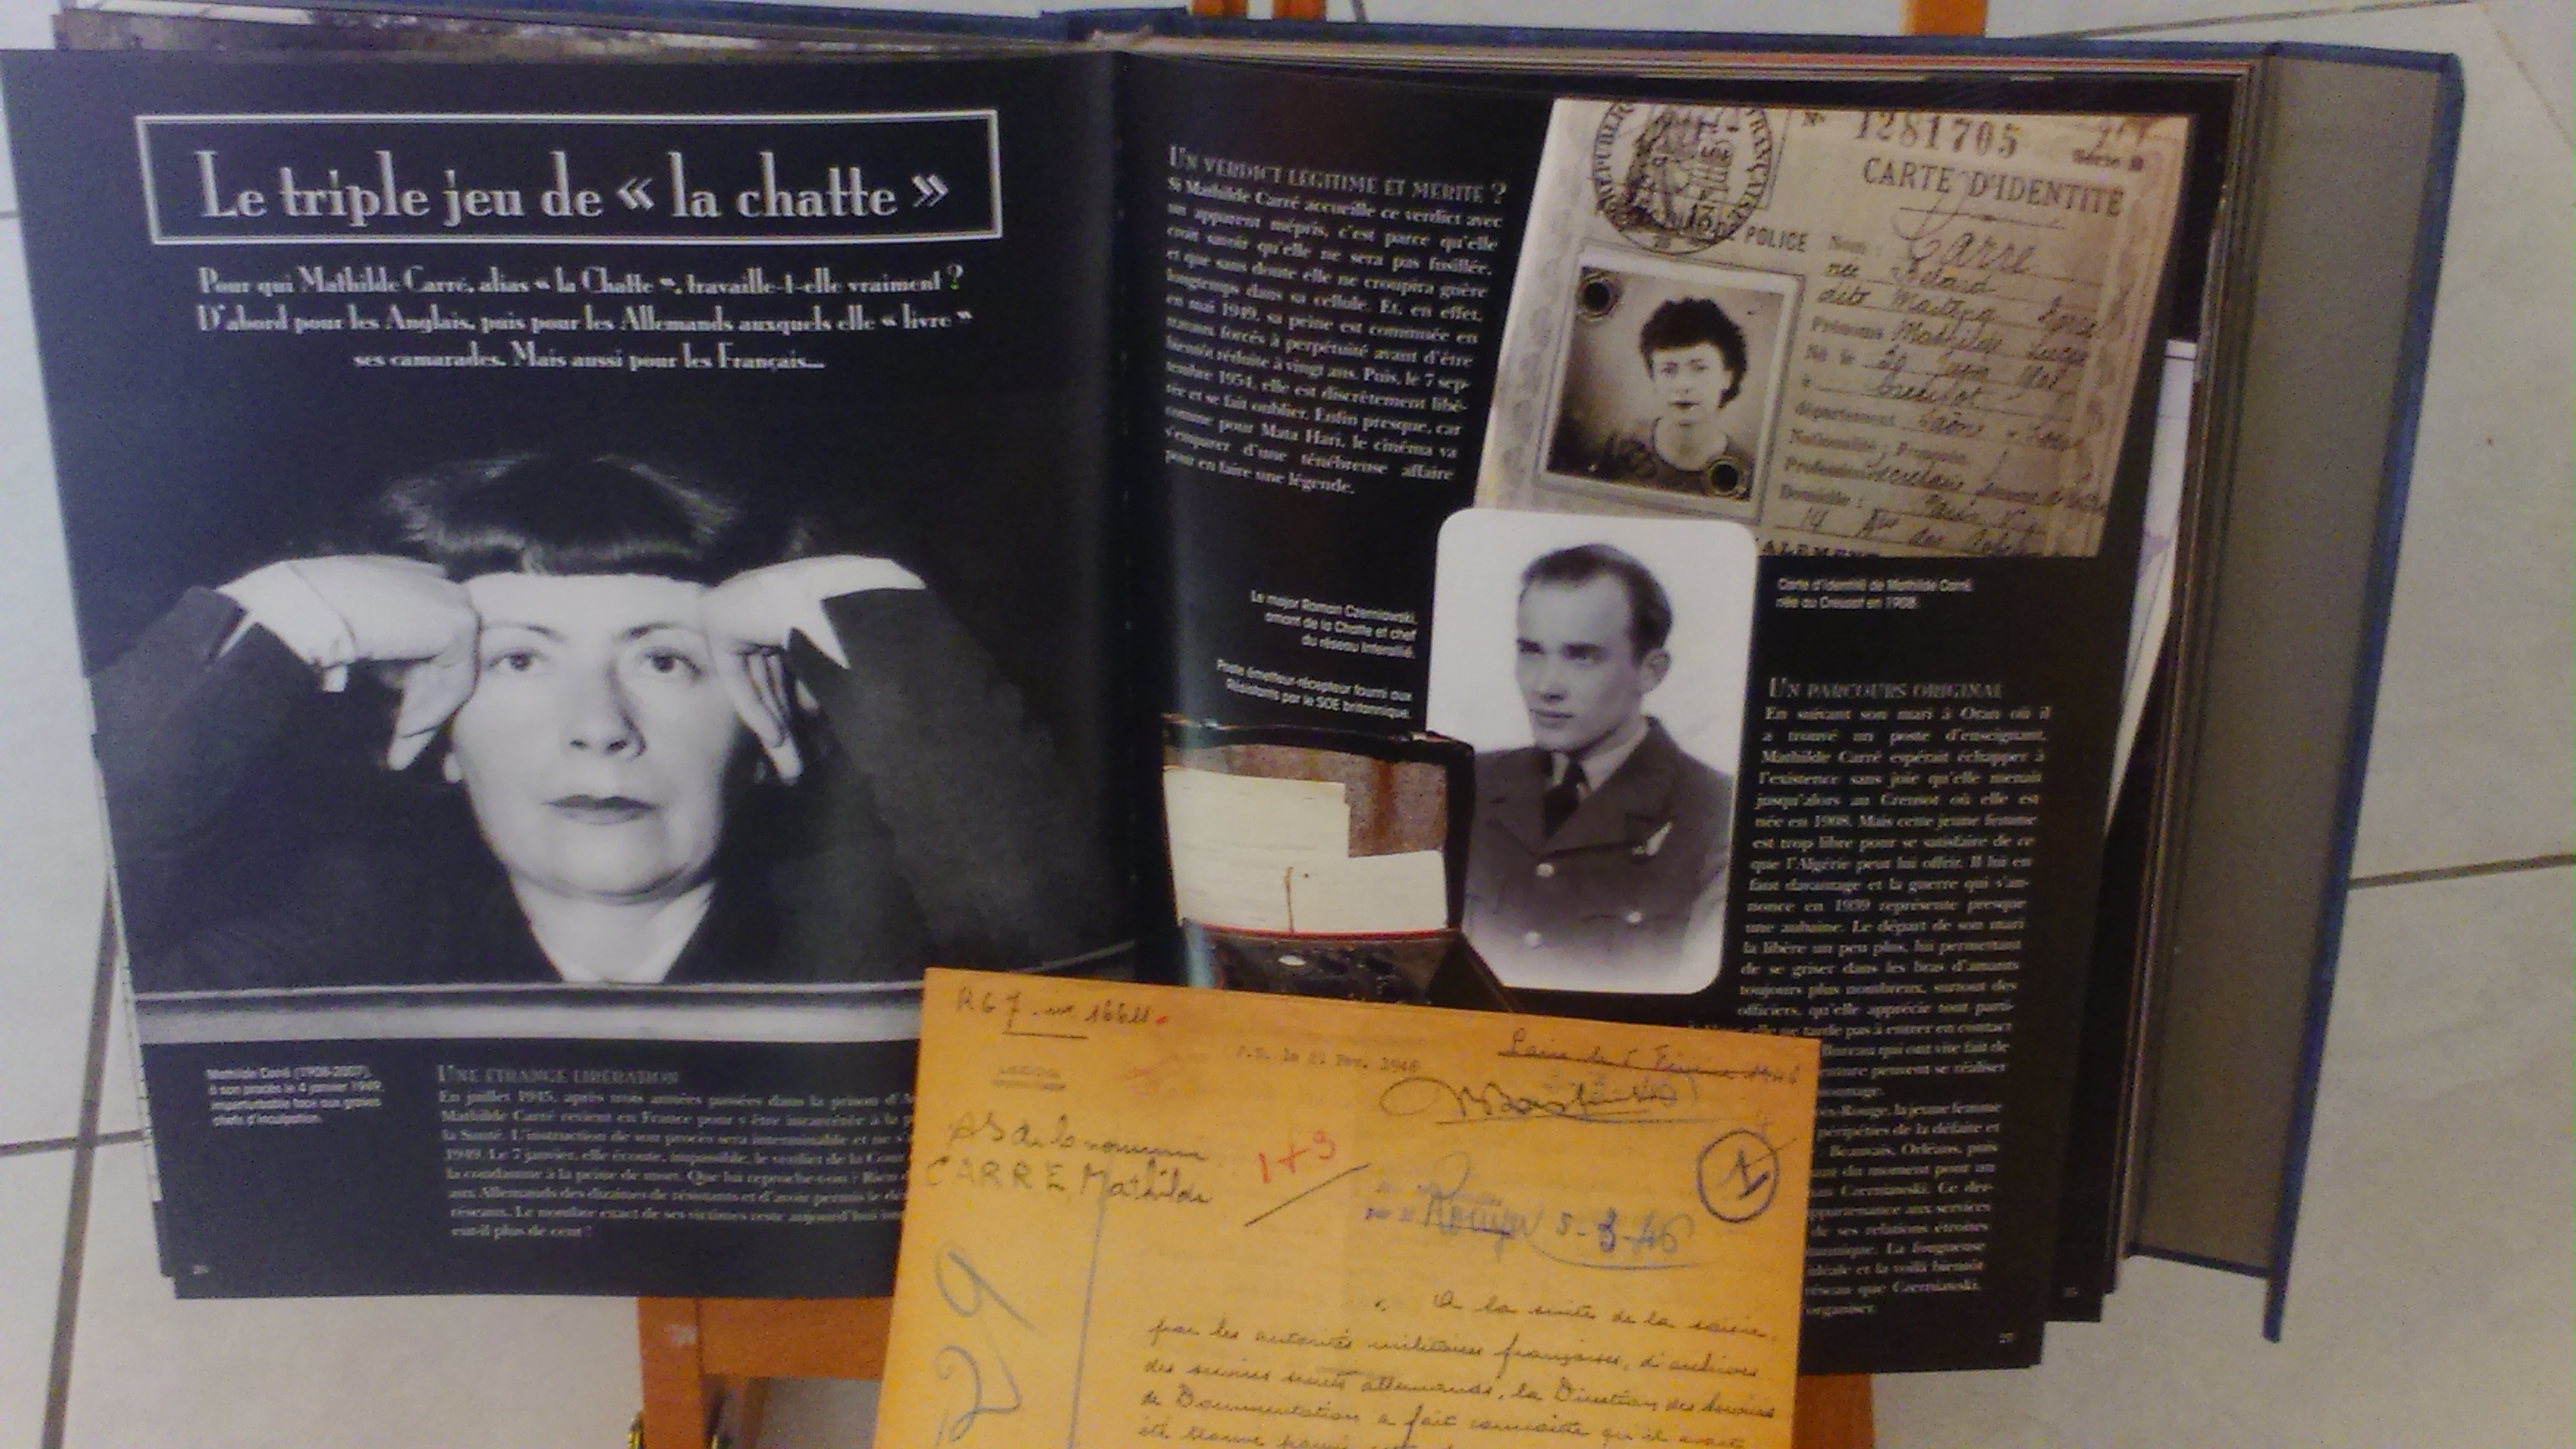 Le triple jeu de « la chatte »
Pour qui Mathilde Carré, alias « la Chatte », travaille-t-elle vraiment ?
D'abord pour les Anglais, puis pour les Allemands auxquels elle « livre »
ses camarades. Mais aussi pour les Français...
Mathilde Carré (1908-2007),
à son procès le 4 janvier 1949,
imperturbable face aux graves
chefs d'inculpation.
UNE ÉTRANGE LIBÉRATION
En juillet 1945, après trois années passées dans la prison
Mathilde Carré revient en France pour y être incarcérée à la
la Santé. L'instruction de son procès sera interminable et ne
1949. Le 7 janvier, elle écoute, impassible, le verdict de la Cour
la condamne à la peine de mort. Que lui reproche-t-on ?
aux Allemands des dizaines de résistants et d'avoir permis le
réseaux. Le nombre exact de ses victimes reste aujourd'hui
eut-il plus de cent !
UN VERDICT LÉGITIME ET MÉRITÉ ?
Si Mathilde Carré accueille ce verdict avec
un apparent mépris, c'est parce qu'elle
croit savoir qu'elle ne sera pas fusillée,
et que sans doute elle ne croupira guère
longtemps dans sa cellule. Et, en effet,
en mai 1949, sa peine est commuée en
travaux forcés à perpétuité avant d'être
bientôt réduite à vingt ans. Puis, le 7 sep-
tembre 1954, elle est discrètement libé-
rée et se fait oublier. Enfin presque, car
comme pour Mata Hari, le cinéma va
s'emparer d'une ténébreuse affaire
pour en faire une légende.
Le major Roman Czerniawski,
amant de la Chatte et chef
du réseau Interallié.
Poste émetteur-récepteur fourni aux
Résistants par le SOE britannique.
N° 1281705
Série B
CARTE D'IDENTITÉ
DE POLICE
Nom : Carré
née
dite
Prénoms Mathilde Lucie
Né le 30 juin 1908
à Creusot
département Saône
Nationalité : Française
Profession secrétaire
Domicile : Paris
14
Carte d'identité de Mathilde Carré,
née au Creusot en 1908.
UN PARCOURS ORIGINAL
En suivant son mari à Oran où il
a trouvé un poste d'enseignant,
Mathilde Carré espérait échapper à
l'existence sans joie qu'elle menait
jusqu'alors au Creusot où elle est
née en 1908. Mais cette jeune femme
est trop libre pour se satisfaire de ce
que l'Algérie peut lui offrir. Il lui en
faut davantage et la guerre qui s'an-
nonce en 1939 représente presque
une aubaine. Le départ de son mari
la libère un peu plus, lui permettant
de se griser dans les bras d'amants
toujours plus nombreux, surtout des
officiers, qu'elle apprécie tout parti-
elle ne tarde pas à entrer en contact
Bureau qui ont vite fait de
peuvent se réaliser
-Rouge, la jeune femme
péripéties de la défaite et
Beauvais, Orléans, puis
du moment pour un
Czerniawski. Ce der-
appartenance aux services
de ses relations étroites
La fougueuse
idéale et la voilà bientôt
réseau que Czerniawski,
organiser.
R G 7
Fev. 1946
1946
CARRE Mathilde
1+9
1
5-3-46
29
A la suite de la saisie,
par les autorités militaires françaises, d'archives
des services secrets allemands, la Direction des Services
de Documentation a fait connaître qu'il avait
été trouvé